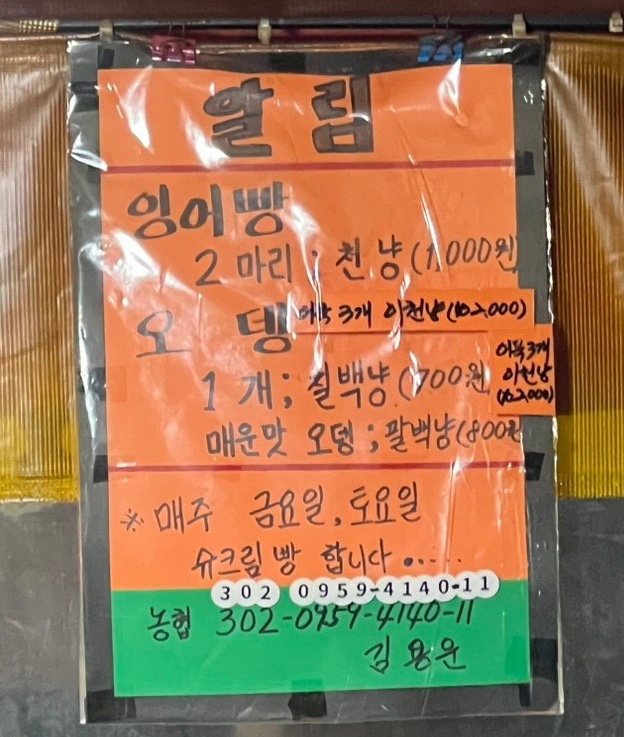 알림
잉어빵
2 마리 ; 천 냥 (1,000원)
오 뎅
어묵 3개 이천냥 (₩2,000)
어묵3개
이천냥
(₩2,000)
1 개 ; 칠백냥 (700원
매운맛 오뎅 ; 팔백냥 (800원
※ 매주 금요일, 토요일
슈크림빵 합니다 .....
302 0959-4140-11
농협 302-0959-4140-11
김용운